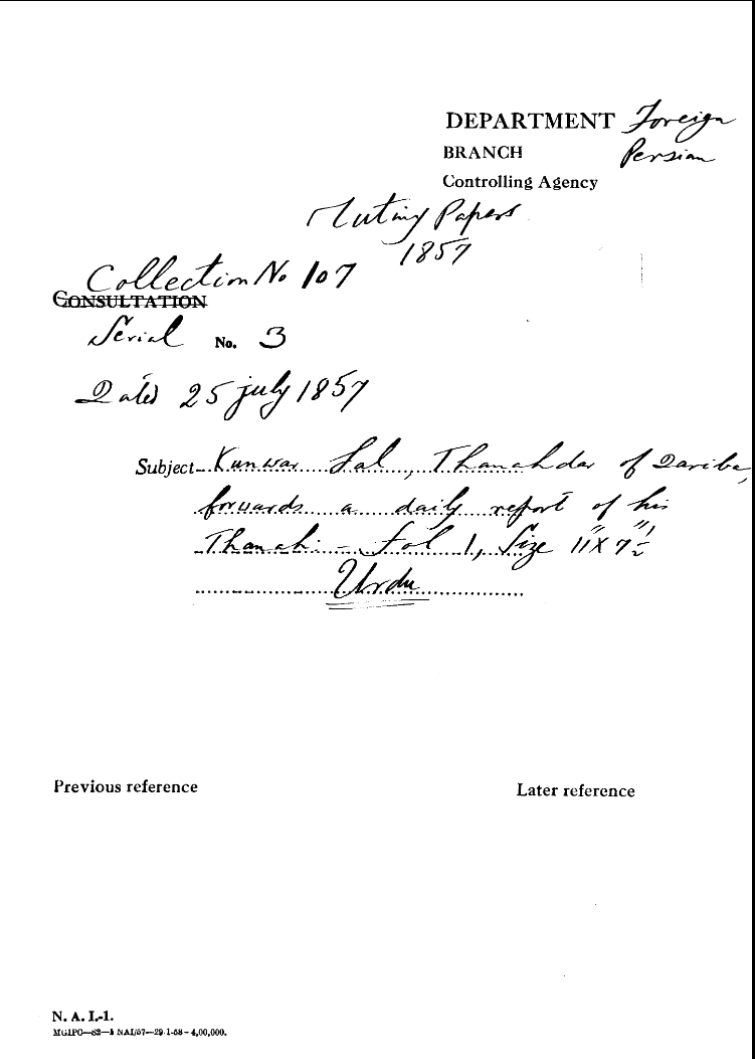 DEPARTMENT Foreign
BRANCH Persian
Controlling Agency
Mutiny Papers
1857
Collection No 107
CONSULTATION
Serial No. 3
Dated 25 july 1857
Subject Kunwar Lal, Thanahdar of Dariba,
forwards a daily report of his
Thanah. - Fol 1, Size 11" X 7"½
Urdu
Previous reference Later reference
N. A. I.-1.
MGIPC—S2—1 NAI/57—29-1-58—4,00,000.